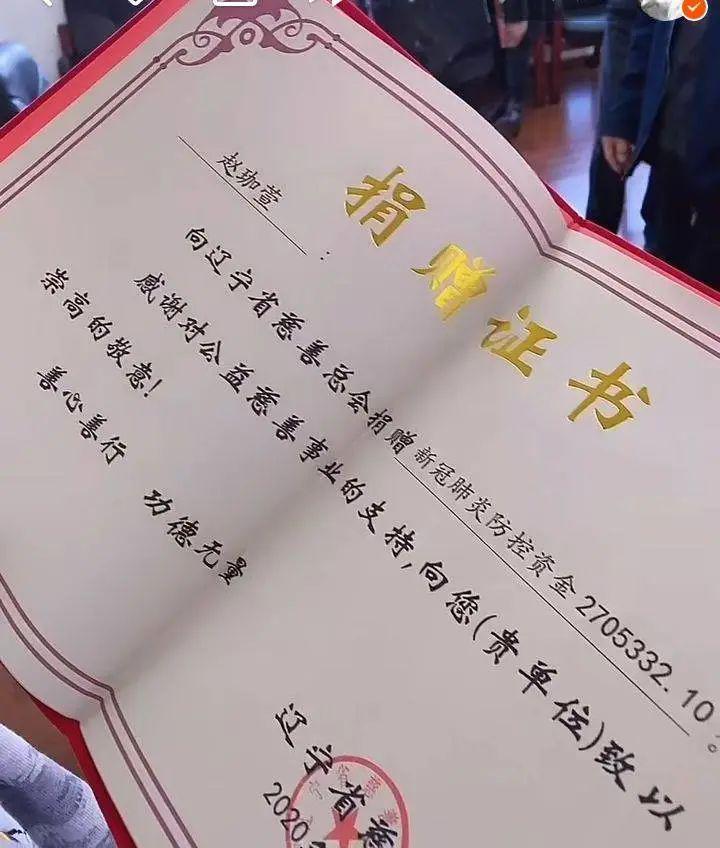 捐赠证书
赵珈萱：
向辽宁省慈善总会捐赠新冠肺炎防控资金2705332.10
。
感谢对公益慈善事业的支持,向您(贵单位)致以
崇高的敬意!
善心善行 功德无量
辽宁省慈
2020